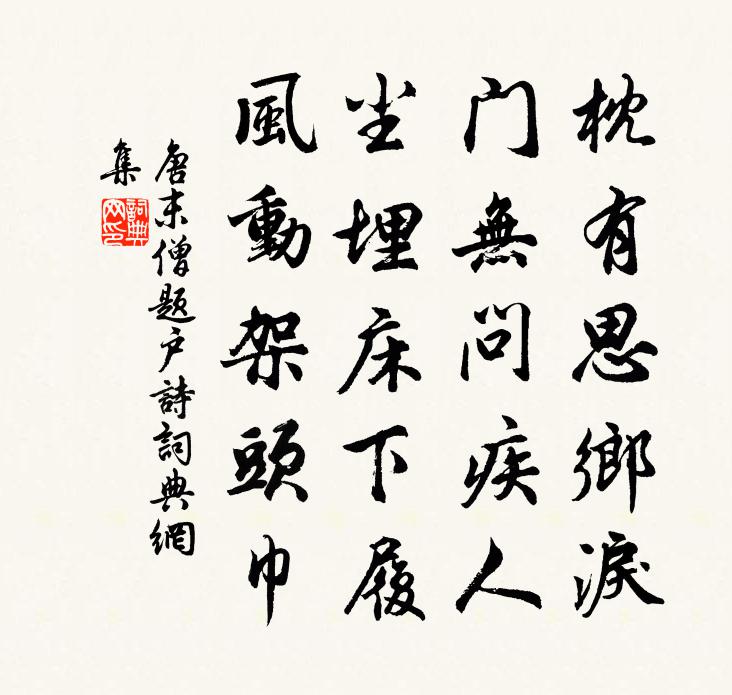 枕有思鄉淚
門無問疾人
尘埋床下履
風動架頭巾
唐末僧題户詩詞典網
集
詞典
网印